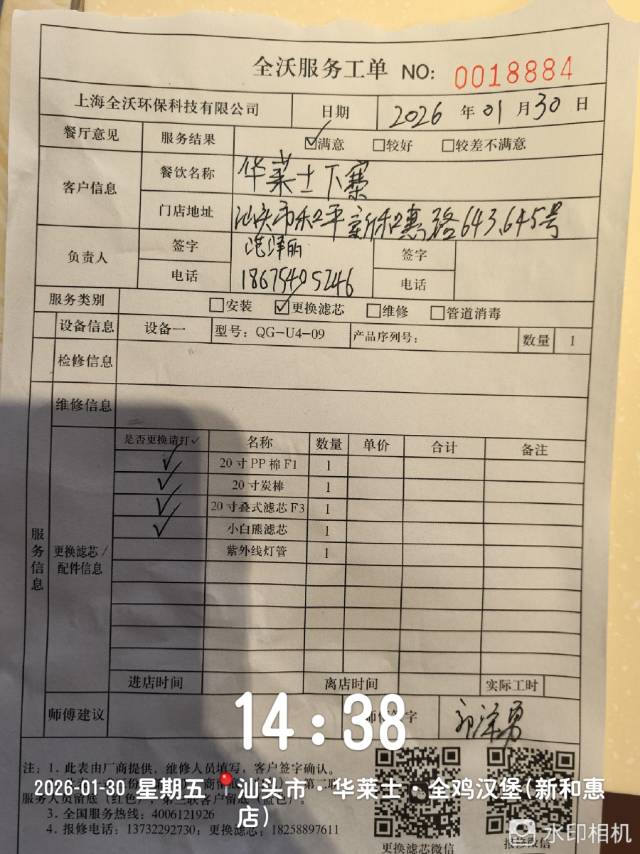 全沃服务工单 NO: 0018884
上海全沃环保科技有限公司 日期 2026 年 01 月 30 日
餐厅意见 服务结果 ☑满意 □较好 □较差不满意
客户信息 餐饮名称 华莱士下寨
门店地址 汕头市和平新和惠路643.645号
负责人 签字 签字
电话 18675405246 电话
服务类别 □安装 ☑更换滤芯 □维修 □管道消毒
设备信息 设备一 型号: QG-U4-09 产品序列号: 数量 1
检修信息
维修信息
是否更换请打✓ 名称 数量 单价 合计 备注
✓ 20寸PP棉F1 1
✓ 20寸炭棒 1
✓ 20寸叠式滤芯F3 1
✓ 小白熊滤芯 1
紫外线灯管 1
服务信息
更换滤芯/配件信息
进店时间 离店时间 实际工时
师傅建议 签字
14:38
注: 1. 此表由厂商提供, 维修人员填写, 客户签字确认。
2026-01-30 星期五 汕头市·华莱士·全鸡汉堡(新和惠店)
3. 全国服务热线: 4006121926
4. 报修电话: 13732292730; 更换滤芯: 18258897611
更换滤芯微信 报修微信
水印相机